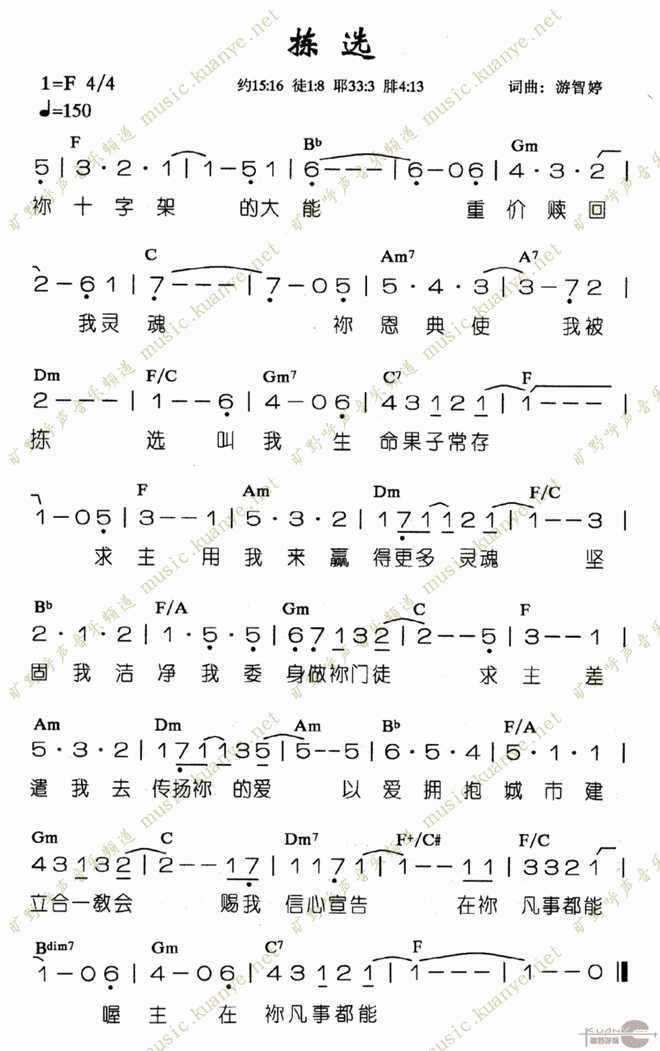 拣选
1=F 4/4 约15:16 徒1:8 耶33:3 腓4:13 词曲：游智婷
♩=150
F B♭ Gm
5 | 3·2·1 | 1-51 | 6--- | 6-06 | 4·3·2 |
祢十字架 的大能 重价赎回
C Am7 A7
2-61 | 7--- | 7-05 | 5·4·3 | 3-72 |
我灵魂 祢恩典使 我被
Dm F/C Gm7 C7 F
2--- | 1--6 | 4-06 | 43121 | 1--- |
拣 选叫我生 命果子常存
F Am Dm F/C
1-05 | 3--1 | 5·3·2 | 171121 | 1--3 |
求主用我来赢得更多灵魂 坚
B♭ F/A Gm C F
2·1·2 | 1·5·5 | 67132 | 2--5 | 3--1 |
固我洁净我委身做祢门徒 求主差
Am Dm Am B♭ F/A
5·3·2 | 171135 | 5--5 | 6·5·4 | 5·1·1 |
遣我去传扬祢的爱 以爱拥抱城市建
Gm C Dm7 F+/C# F/C
43132 | 2--17 | 1171 | 1--11 | 3321 |
立合一教会 赐我信心宣告 在祢凡事都能
Bdim7 Gm C7 F
1-06 | 4-06 | 43121 | 1--- | 1--0 ‖
喔主 在祢凡事都能
旷野呼声音乐频道 music.kuanye.net